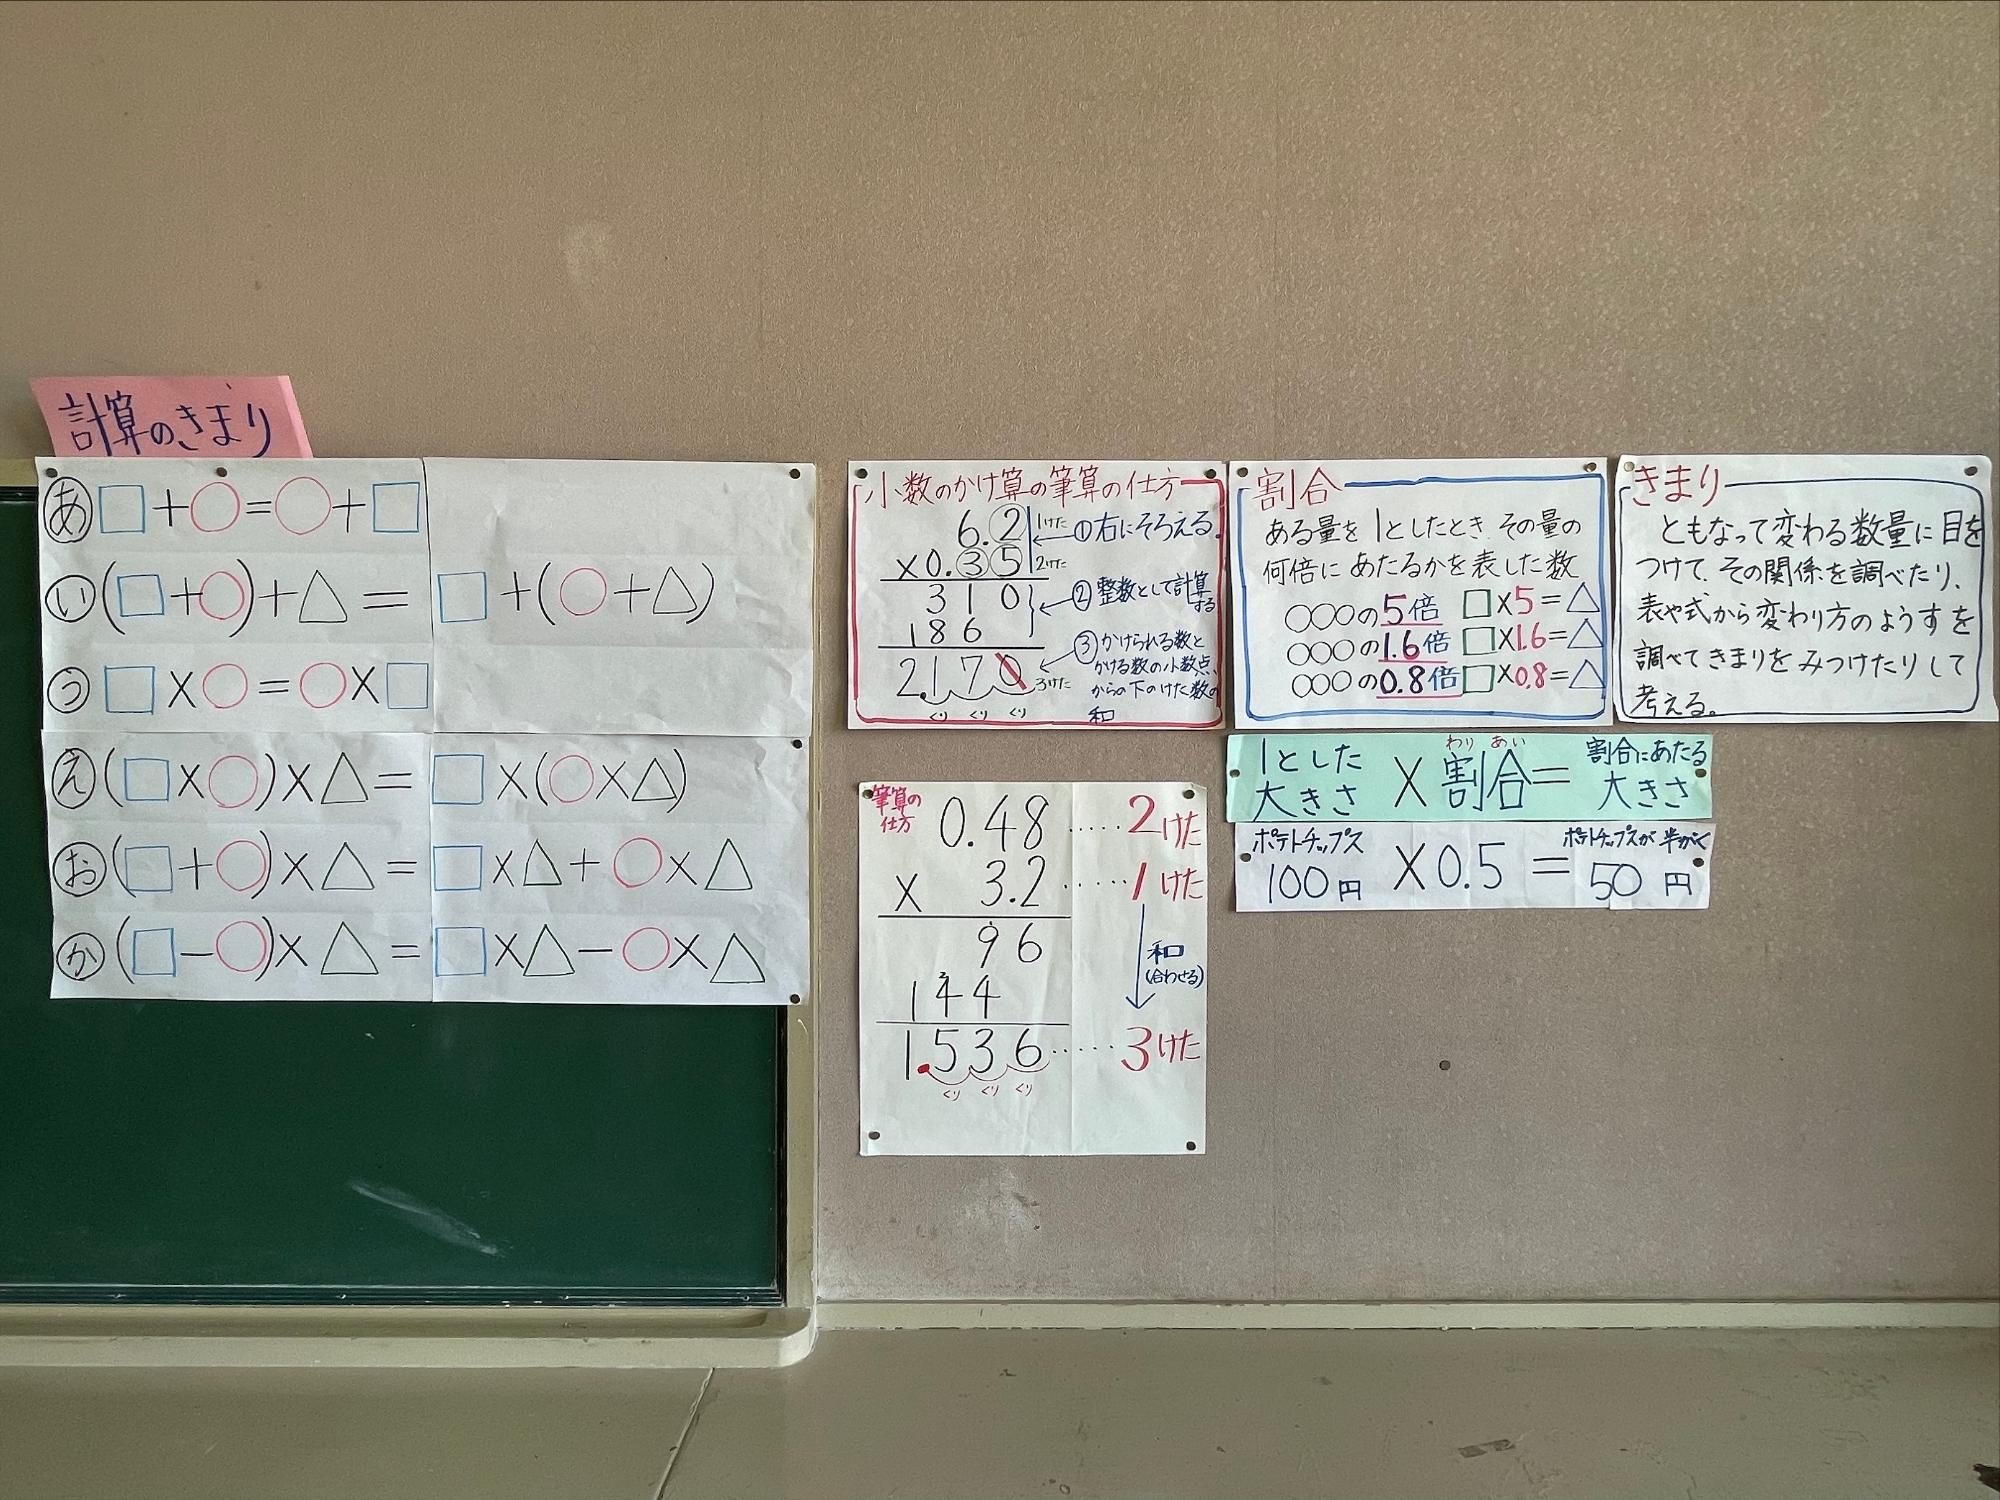 計算のきまり
あ □+○=○+□
い (□+○)+△=□+(○+△)
う □×○=○×□
え (□×○)×△=□×(○×△)
お (□+○)×△=□×△+○×△
か (□-○)×△=□×△-○×△
小数のかけ算の筆算の仕方
6.2 1けた ①右にそろえる。
×0.35 2けた
310 ②整数として計算する
186
2.170 3けた
③かけられる数と
かける数の小数点
からの下のけた数の
和
くり くり くり
割合
ある量を1としたとき、その量の
何倍にあたるかを表した数
○○○の5倍 □×5=△
○○○の1.6倍 □×1.6=△
○○○の0.8倍 □×0.8=△
きまり
ともなって変わる数量に目を
つけて、その関係を調べたり、
表や式から変わり方のようすを
調べてきまりをみつけたりして
考える。
わりあい
1とした大きさ×割合=割合にあたる大きさ
ポテトチップス ポテトチップスが半がく
100円×0.5=50円
筆算の
仕方
0.48……2けた
×3.2……1けた
96
和
(合わせる)
144
2
1.536……3けた
くり くり くり